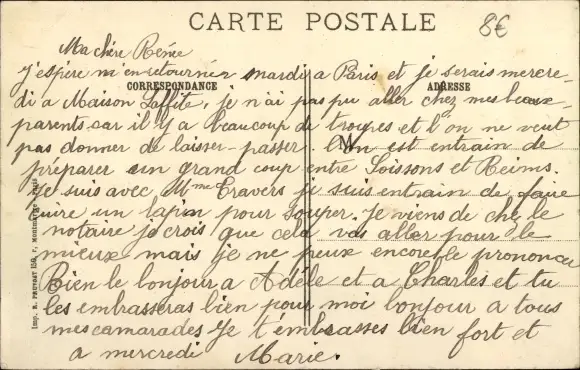 CARTE POSTALE
8€
CORRESPONDANCE
ADRESSE
Ma chère Renée
J'espère m'en retourner mardi a Paris et je serais mercre-
di a Maison Laffite, je n'ai pas pu aller chez mes beaux-
parents car il y a beaucoup de troupes et l'on ne veut
pas donner de laisser-passer. L'on est entrain de
préparer un grand coup entre Soissons et Reims.
Je suis avec Mme Travers je suis entrain de faire
cuire un lapin pour souper. Je viens de chez le
notaire je crois que cela vas aller pour le
mieux mais je ne peux encore le prononcer
Bien le bonjour a Adèle et a Charles et tu
les embrasseras bien pour moi bonjour a tous
mes camarades Je t'embrasses bien fort et
a mercredi Marie.
M
Imp. E.